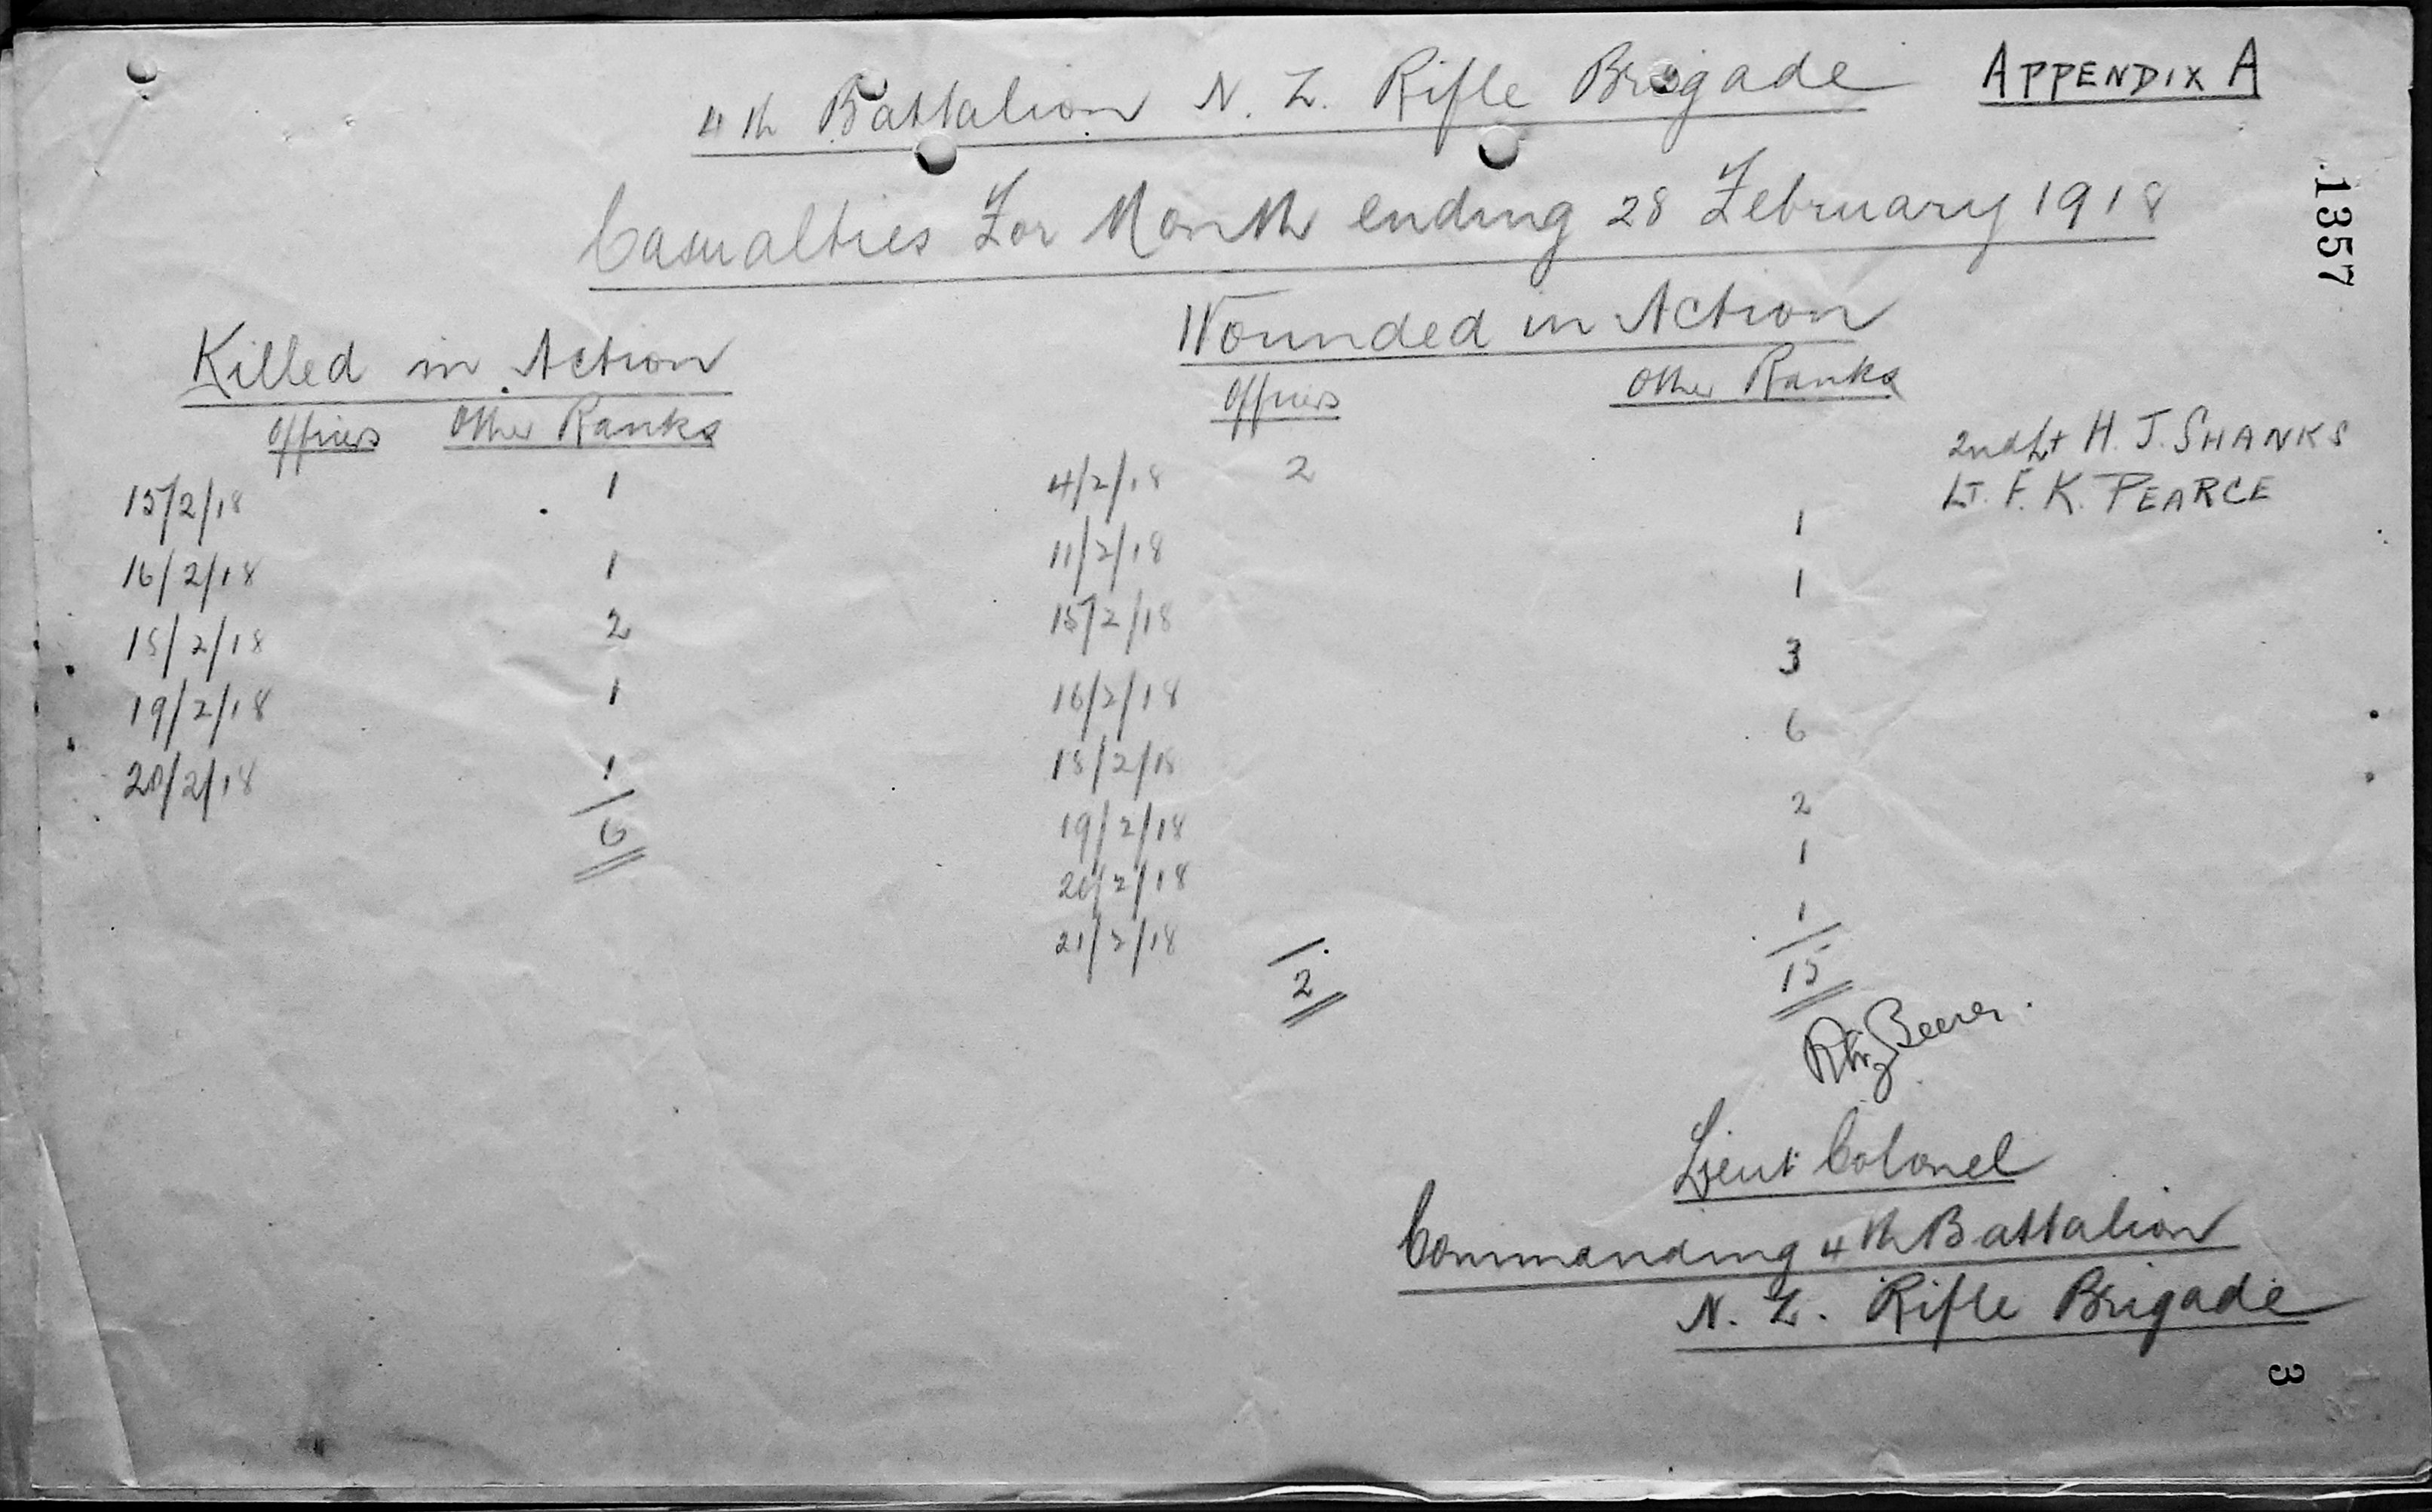 4th Battalion N. Z. Rifle Brigade APPENDIX A
1357
Casualties For Month ending 28 February 1918
Killed in Action Wounded in Action
Officers Other Ranks Officers Other Ranks
15/2/18 1 4/2/18 2 2nd Lt H. J. SHANKS
LT. F. K. PEARCE
16/2/18 1 11/2/18 1
18/2/18 2 15/2/18 1
19/2/18 1 16/2/18 3
20/2/18 1 18/2/18 6
6 19/2/18 2
20/2/18 1
21/2/18 1
2 15
Lieut Colonel
Commanding 4th Battalion
N. Z. Rifle Brigade
3